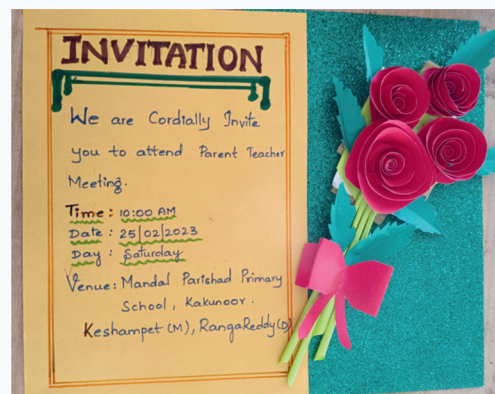 INVITATION
We are Cordially Invite
you to attend Parent Teacher
Meeting.
Time: 10:00 AM
Date: 25/02/2023
Day: Saturday
Venue: Mandal Parishad Primary
School, Kakunoor.
Keshampet (M), RangaReddy(D)